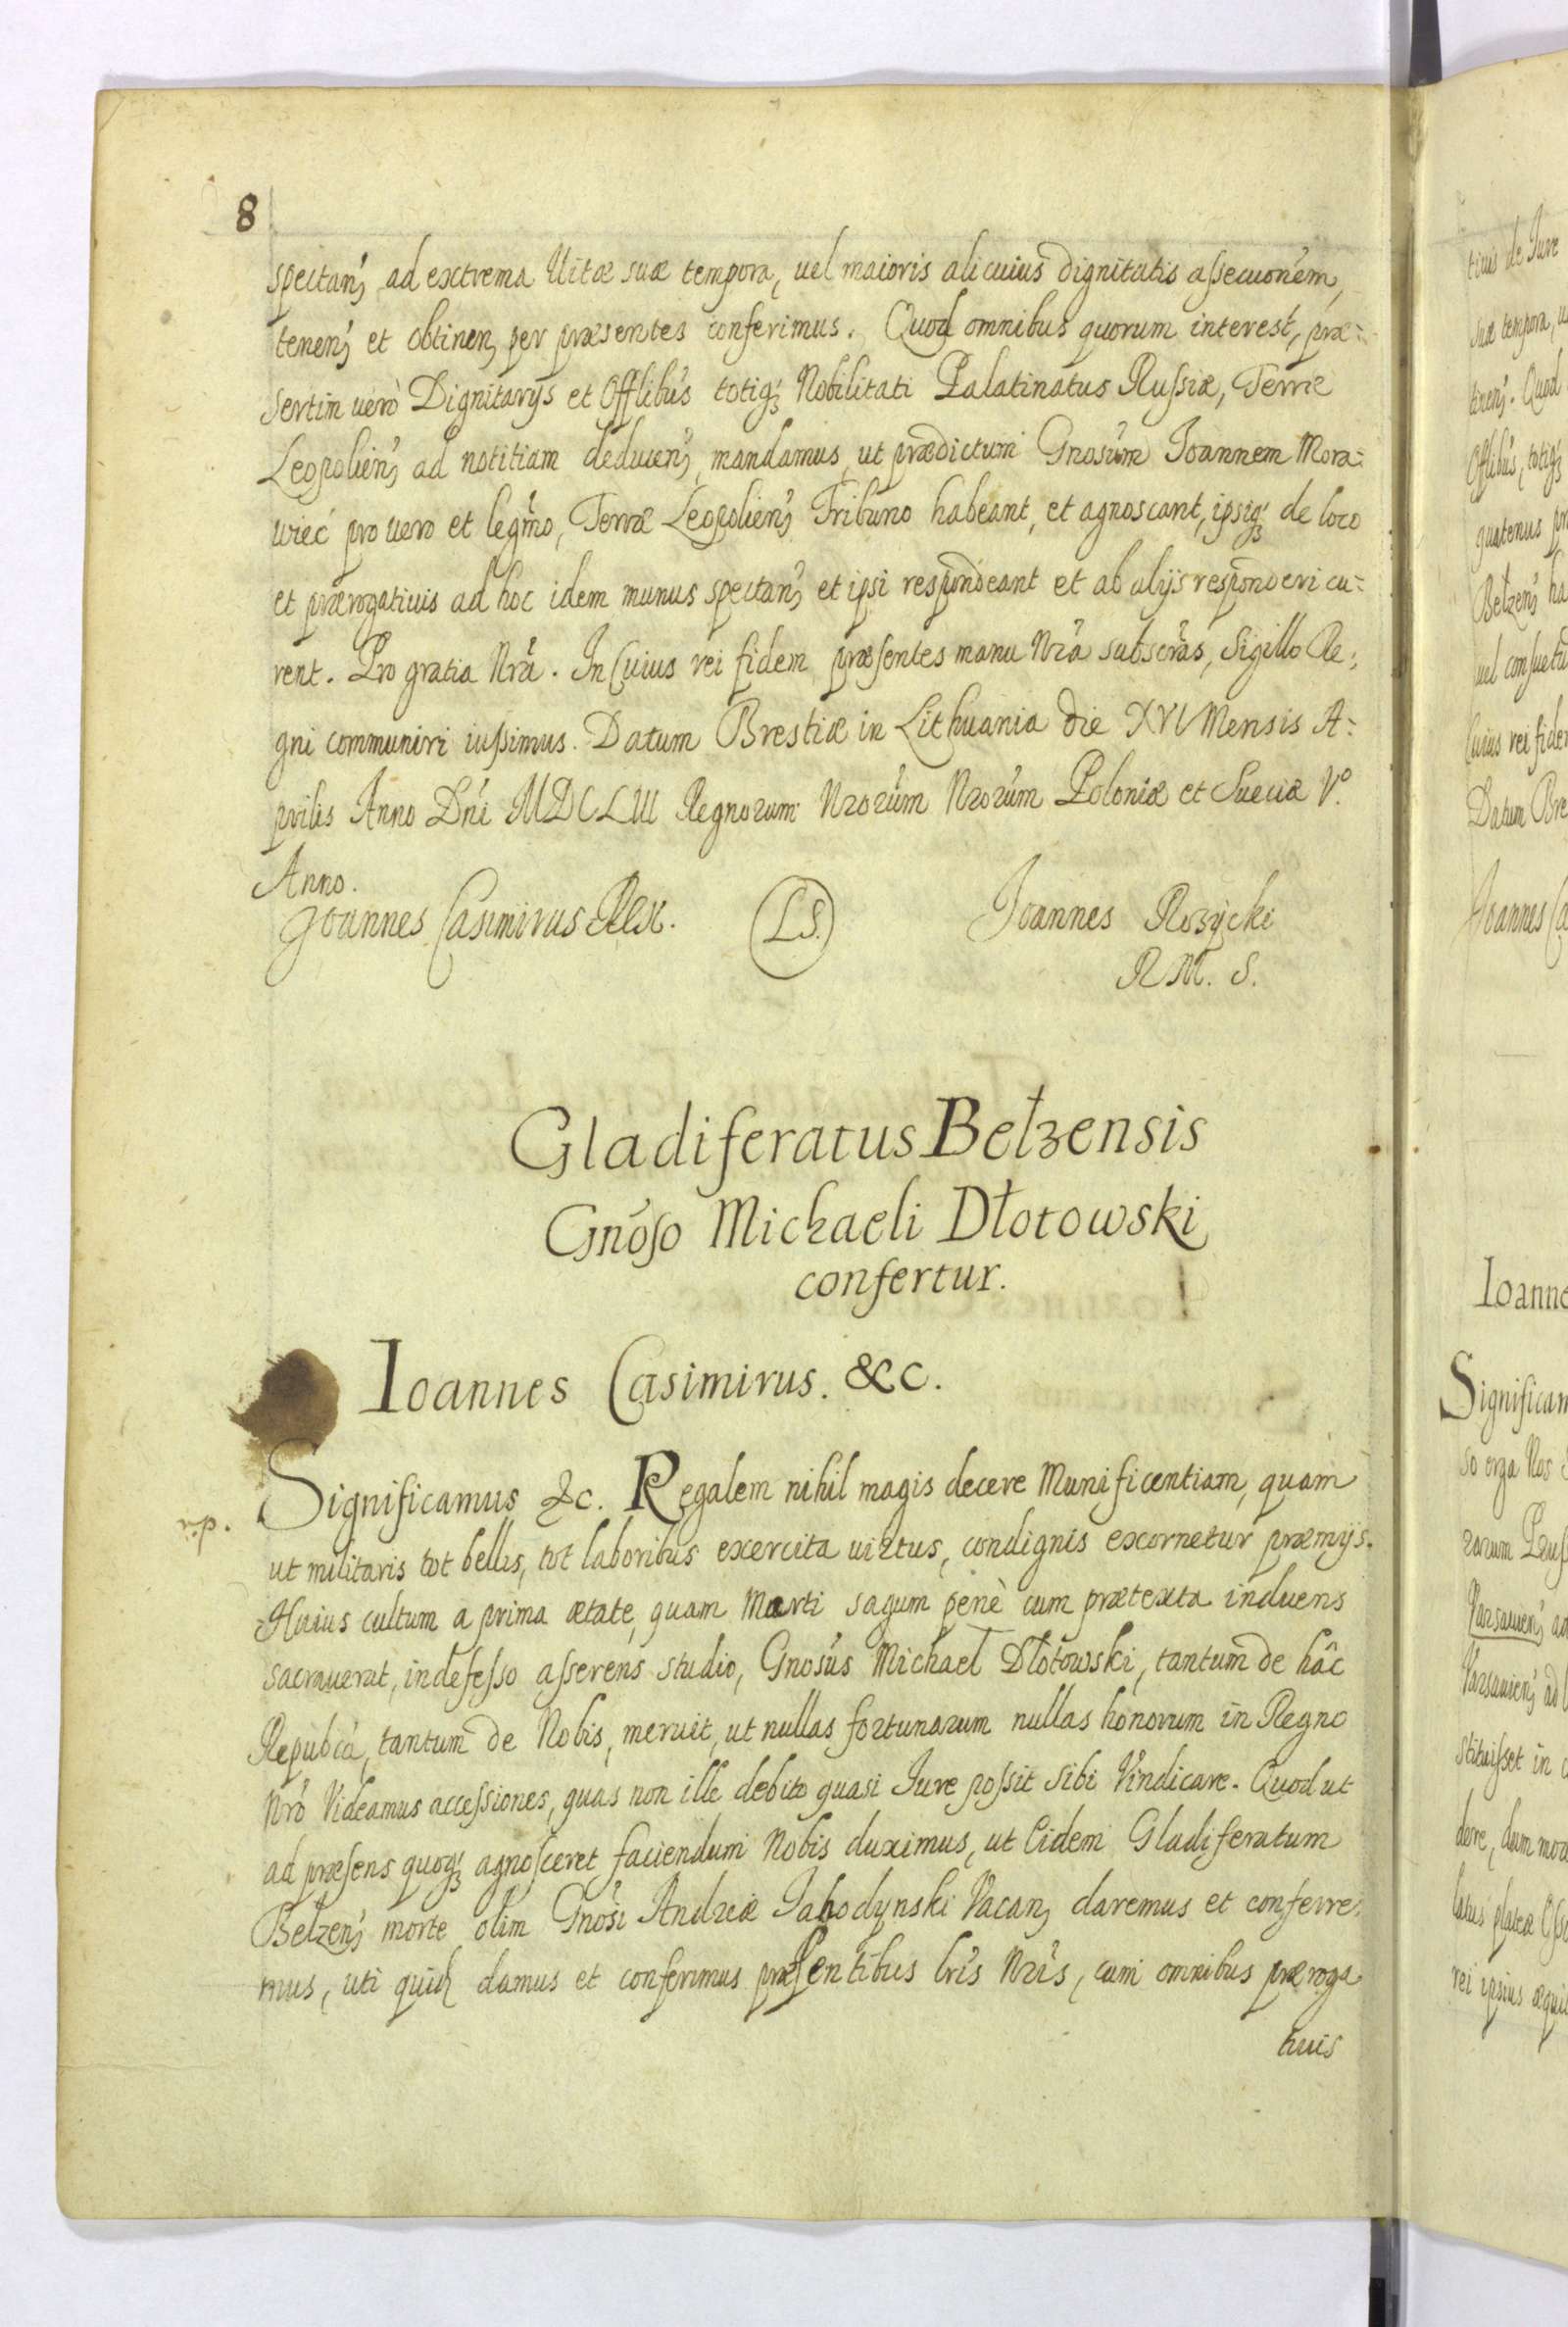 8
spectan, ad extrema Uitæ suæ tempora, uel maioris alicuius dignitatis assecuonem,
tenen, et obtinen, per præsentes conferimus. Quod omnibus quorum interest, præ=
sertim uerò Dignitarijs et Offlibus totiq; Nobilitati Palatinatus Russiæ, Terræ
Leopolien, ad notitiam deducen, mandamus, ut prædictum Gnosum Ioannem Mora=
wiec pro uero et legmo, Terræ Leopolien, Tribuno habeant, et agnoscant, ipsiq; de loco
et prærogatiuis ad hoc idem munus spectan, et ipsi respondeant et ab alijs responderi cu=
rent. Pro gratia Nrâ. In Cuius rei fidem præsentes manu Nrâ subscras, Sigillo Re=
gni communiri iussimus. Datum Brestiæ in Lithuania die XVI Mensis A=
prilis Anno Dni MDCLIII Regnorum Nrorum Nrorum Poloniæ et Sueciæ V.º
Anno.
Joannes Casimirus Rex. (L.S.) Joannes Rozycki
R M. S.
Gladiferatus Bełzensis
Gnoso Michaeli Dłotowski
confertur.
Ioannes Casimirus. &c.
r.p. Significamus &c. Regalem nihil magis decere Munificentiam, quàm
ut militaris tot bellis, tot laboribus exercita uirtus, condignis exornetur præmijs.
Huius cultum a prima ætate, quam Marti sagum penè cum prætexta induens
sacrauerat, indefesso asserens studio, Gnosus Michael Dłotowski, tantum de hâc
Republca, tantum de Nobis, meruit, ut nullas fortunarum nullas honorum in Regno
Nro Videamus accessiones, quas non ille debito quasi Iure possit sibi Vindicare. Quod ut
ad præsens quoq; agnosceret faciendum Nobis duximus, ut Eidem Gladiferatum
Bełzen, morte olim Gnosi Andreæ Jahodynski Vacan, daremus et conferre=
mus, uti quid damus et conferimus præsentibus lris Nris, cum omnibus præroga
tiuis